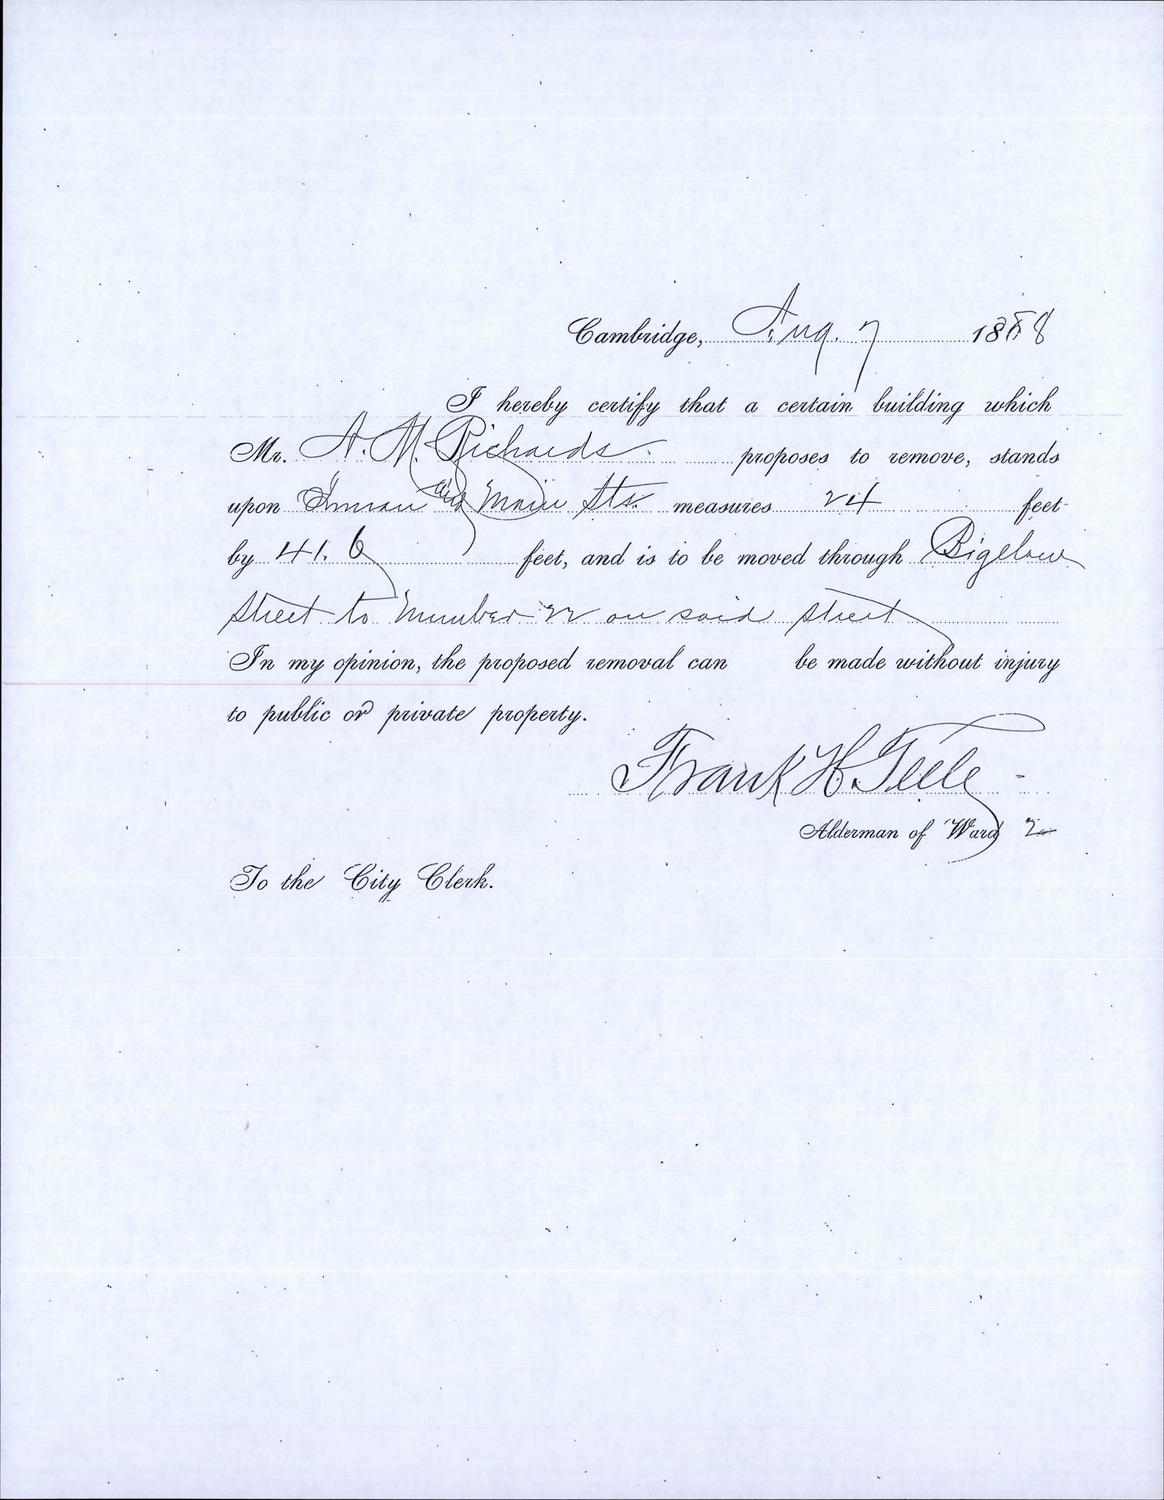 Cambridge, Aug. 7 1888
I hereby certify that a certain building which
Mr. A. M. Richards. proposes to remove, stands
upon Inman and Main Sts. measures 24 feet
by 41.6 feet, and is to be moved through Bigelow
Street to Number 22 on said street
In my opinion, the proposed removal can be made without injury
to public or private property.
Frank H. Teele -
Alderman of Ward 2
To the City Clerk.